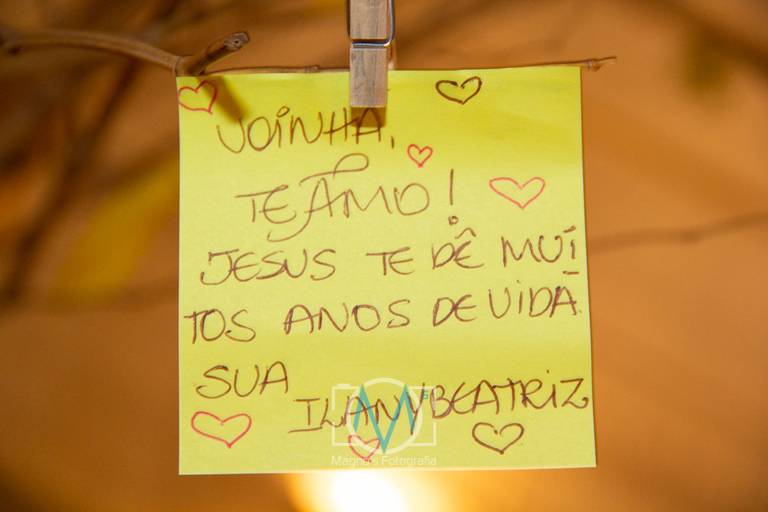 VOINHA,
TE AMO!
JESUS TE DÊ MUI-
TOS ANOS DE VIDA.
SUA
ILANY BEATRIZ
Magno's Fotografia